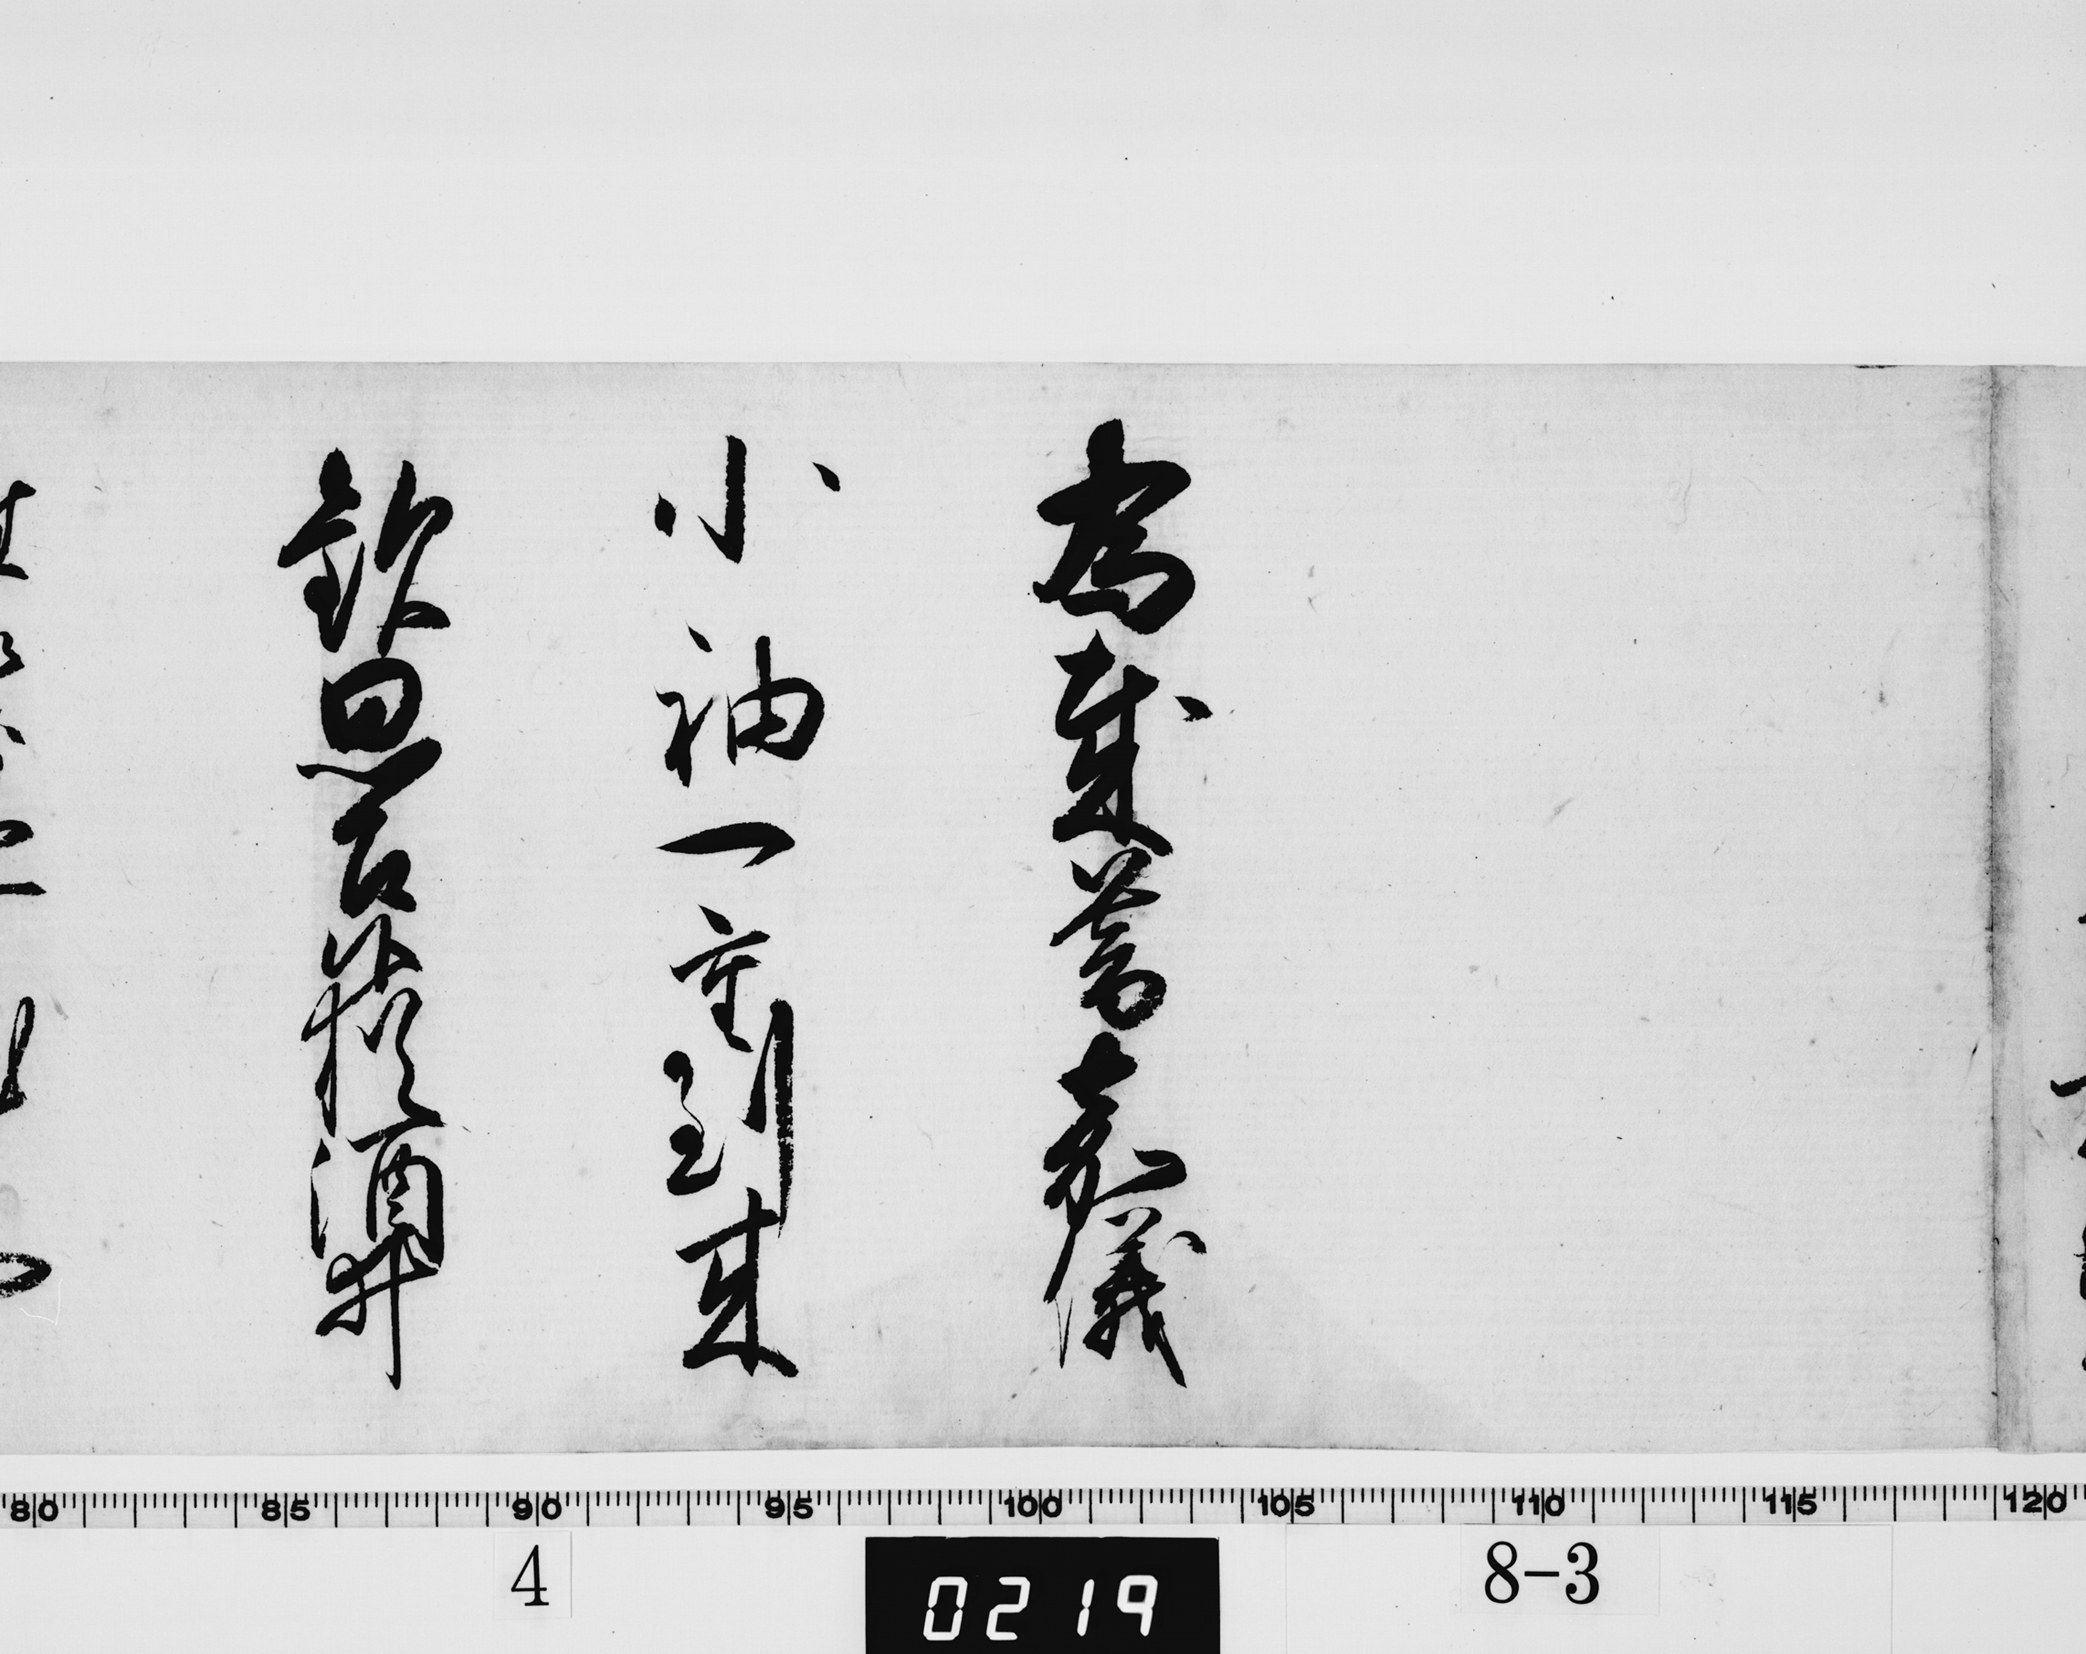 為歳暮嘉儀
小袖一重到来
歓思召候猶酒井
80 85 90 95 100 105 110 115 120
4 0219 8-3